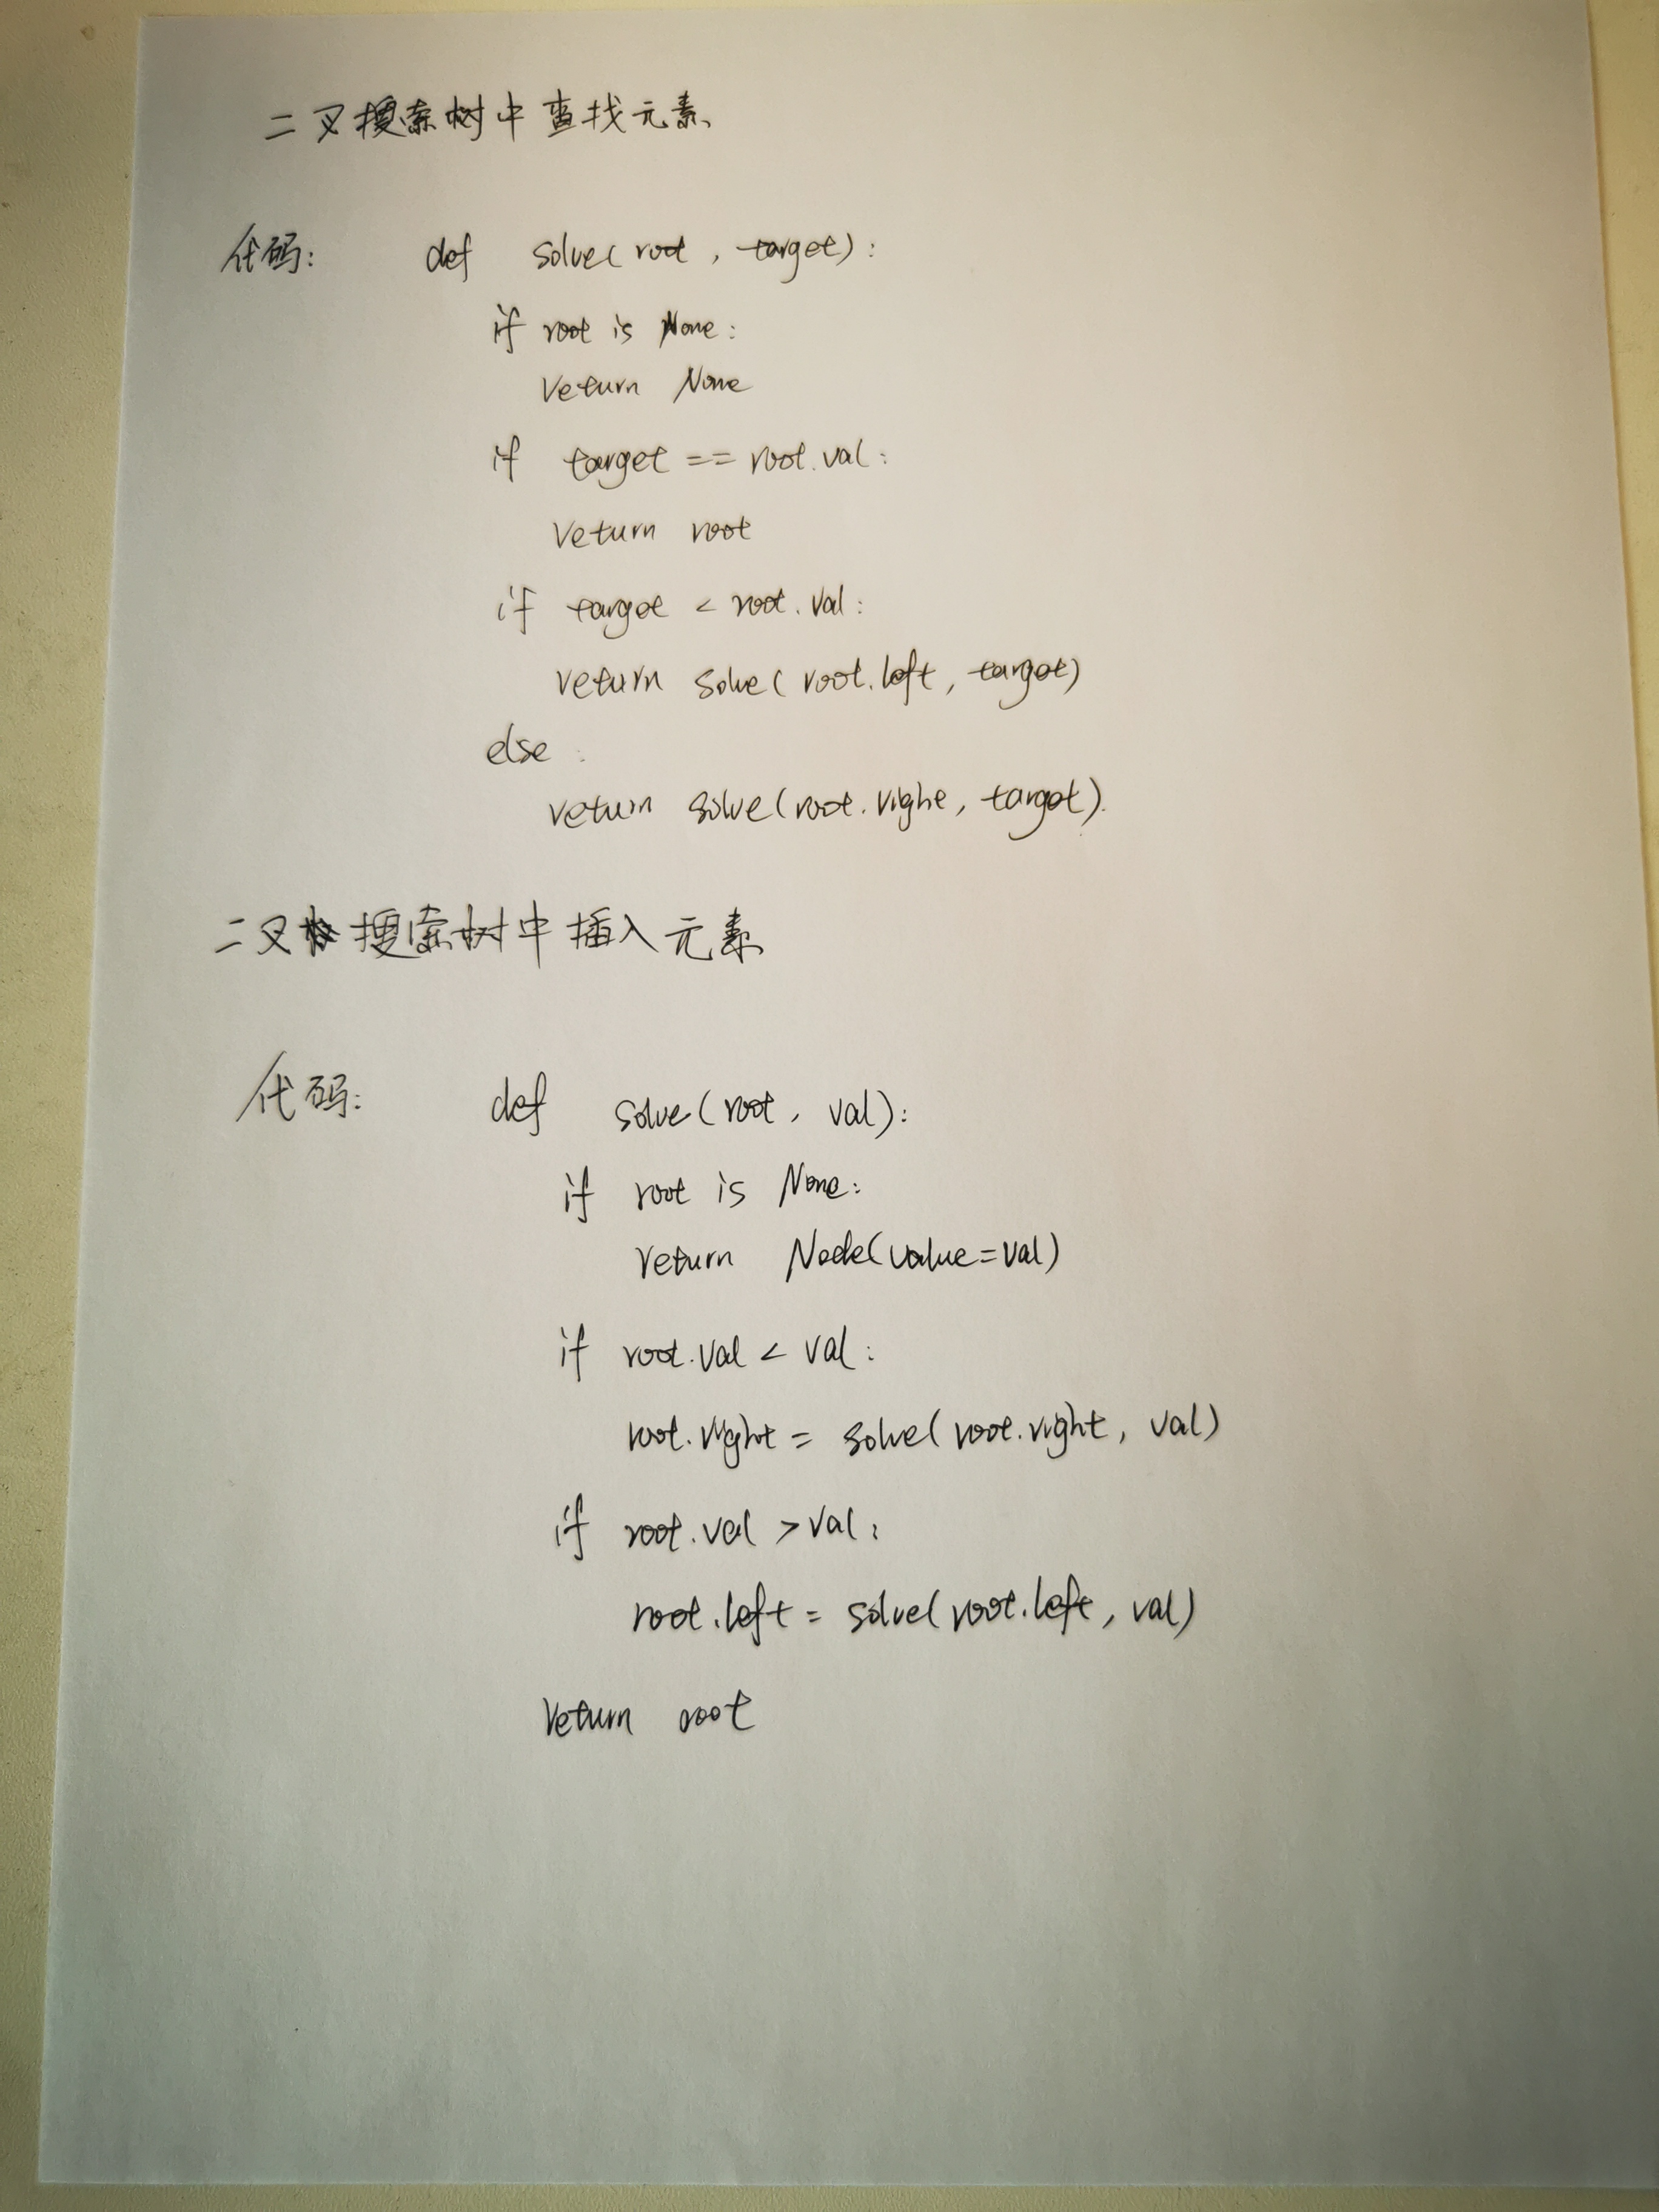 二叉搜索树中查找元素
代码: def solve(root, target):
if root is None:
return None
if target == root.val:
return root
if target < root.val:
return solve(root.left, target)
else:
return solve(root.righe, target).
二叉搜索树中插入元素
代码: def solve(root, val):
if root is None:
return Node(value=val)
if root.val < val:
root.right = solve(root.right, val)
if root.val > val:
root.left = solve(root.left, val)
return root